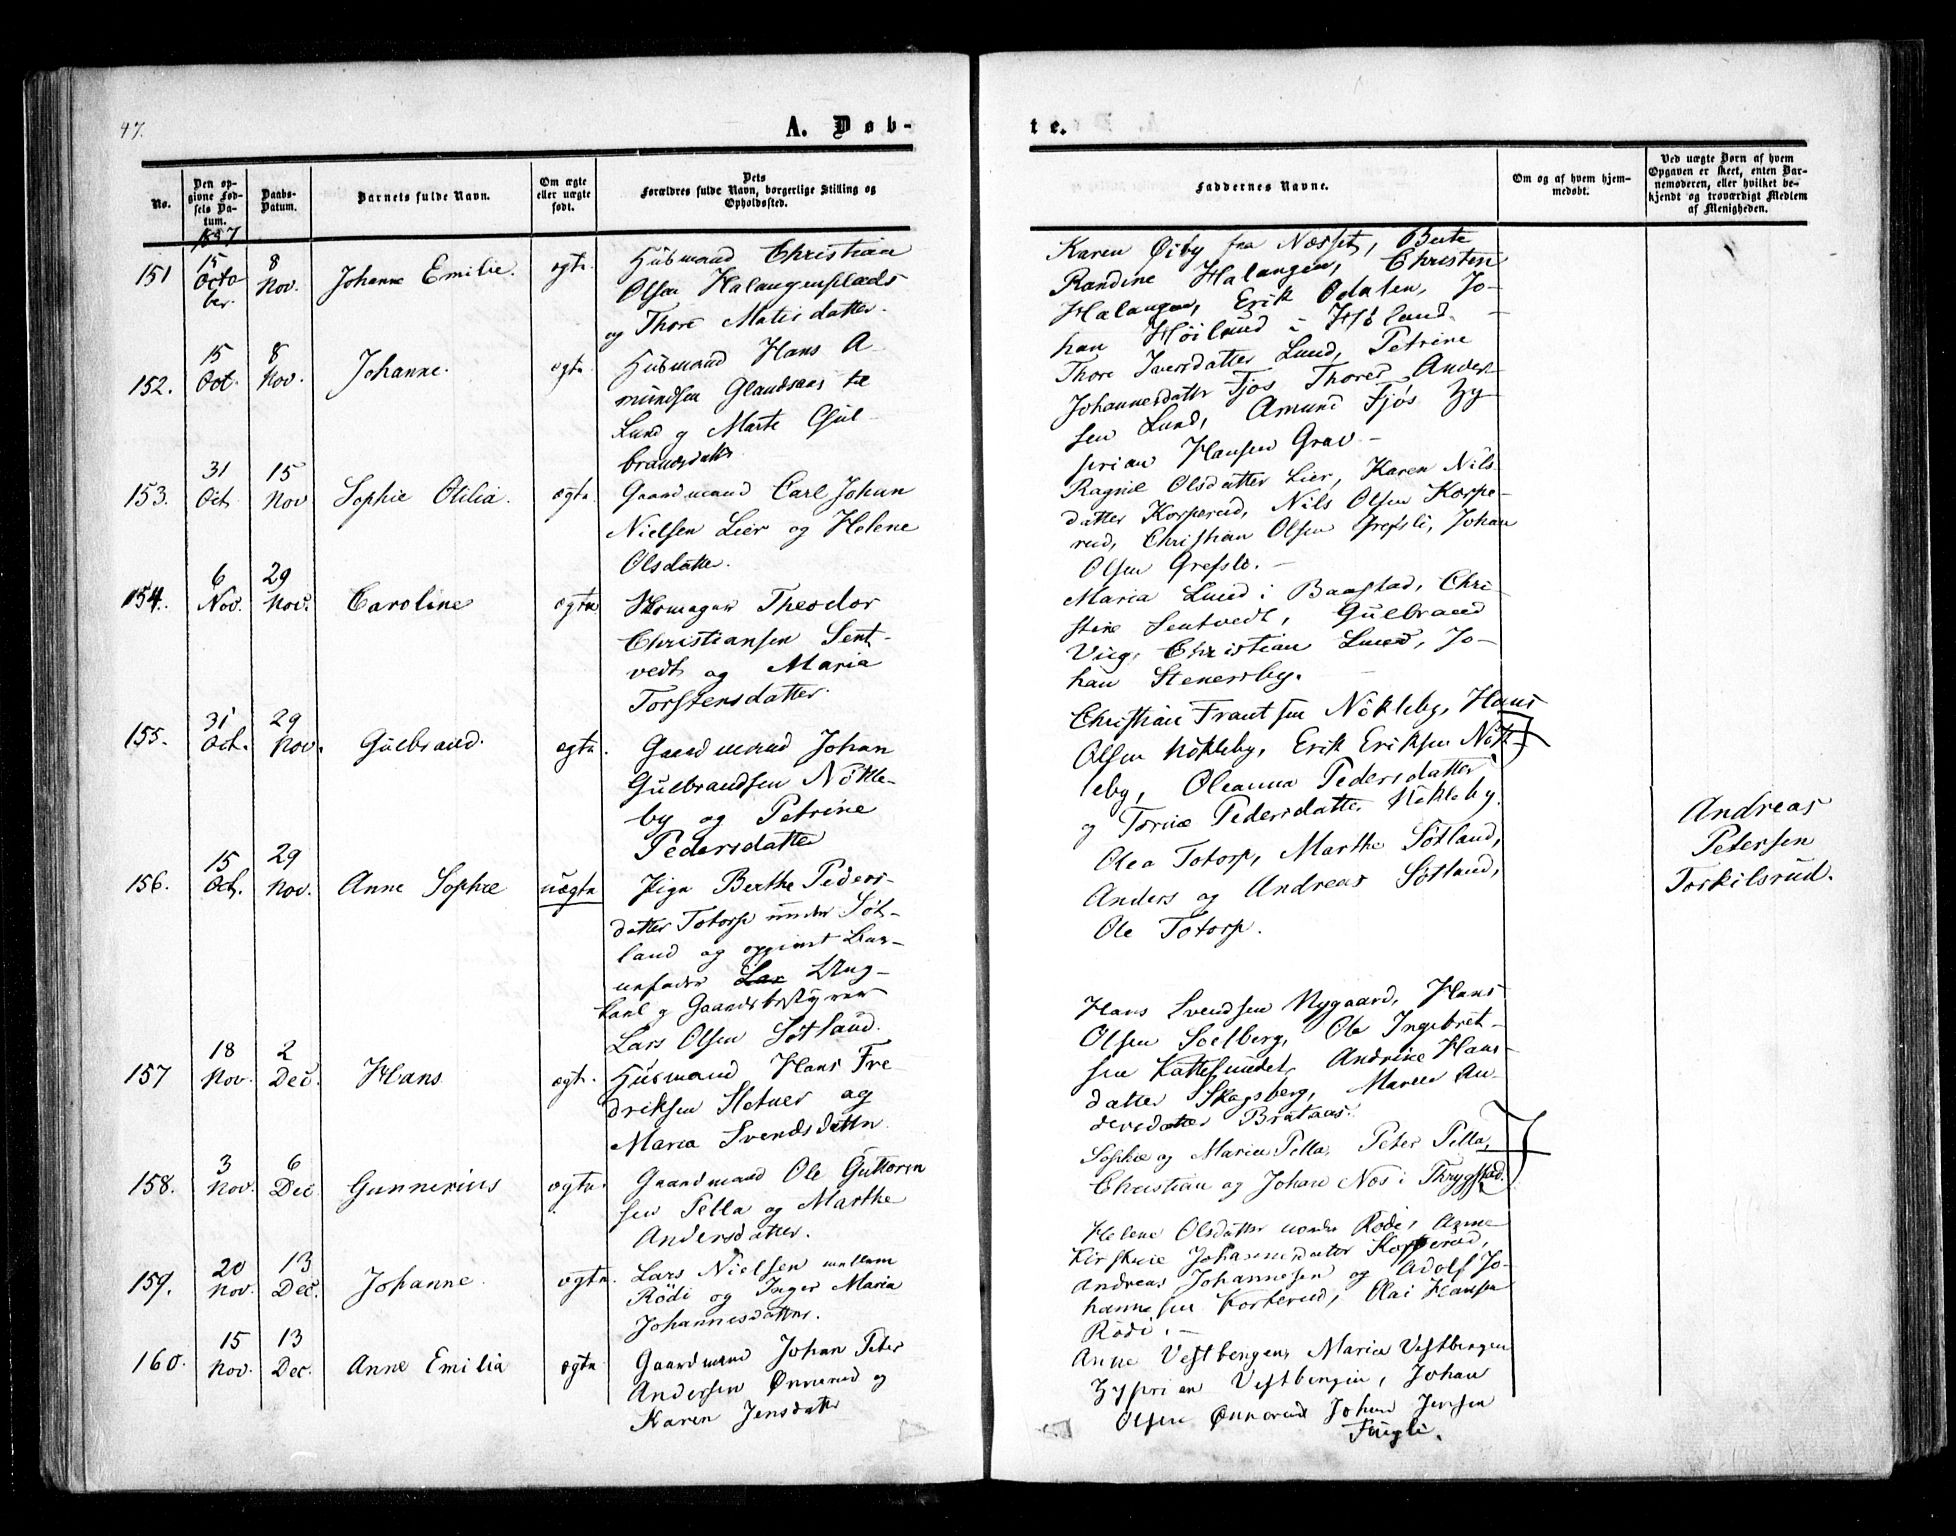 47.
A. Døb-
te.
No.
Den op-
givne Fød-
sels Da-
tum.
Daabs-
Datum.
Barnets fulde Navn.
Om ægte
eller uægte
født.
Dets
Forældres fulde Navn, borgerlige Stilling og
Opholdssted.
Faddernes Navne.
Om og af hvem hjem-
medøbt.
Ved uægte Børn af hvem
Opgaven er skeet, enten Bar-
nemoderen, eller hvilket be-
kjendt og troværdigt Medlem
af Menigheden.
1857
151
15
Octo
ber.
8
Nov.
Johanne Emilie.
ægte.
Husmand Christian
Olsen Halangenplads
og Thore Matisdatter.
Karen Øiby fra Næsset, Berte
Randine Halangen, Christen
Halangen, Erik Odalen, Jo-
han Høiland i Høland.
152.
15
Oct.
8
Nov.
Johanne.
ægte.
Husmand Hans A-
mundsen
Lund og Marte Gul-
brandsdatter
Thore Iversdatter Lund, Petrine
Johannesdatter Fjøs Thorer Ander-
sen Lund, Amund Fjøs Zy-
prian Hansen Grav.-
153.
31
Oct.
15
Nov
Sophie Otilia.
ægte.
Gaardmand Carl Johan
Nielsen Lier og Helene
Olsdatter.
Ragnil Olsdatter Lier, Karen Nils
datter Korperud, Nils Olsen Korpe-
rud, Christian Olsen Grefsli, Johan
Olsen Grefsli.-
154.
6
Nov.
29
Nov.
Caroline
ægte
Skomager Theodor
Christiansen Sent-
vedt og Maria
Torstensdatter.
Maria Lund i Baastad, Chri-
stine Sentvedt, Gulbrand
Vug, Christian Lund, Jo-
han Stenersby.
155.
31
Oct.
29
Nov.
Gulbrand.
ægte.
Gaardmand Johan
Gulbrandsen Nökle-
by og Petrine
Pedersdatter
Christian Frantsen Nökleby, Hans
Olsen Nökleby, Erik Eriksen Nök-
leby, Oleanna Pedersdatter
og Torine Pedersdatter Nökleby.
156.
15
Oct.
29
Nov.
Anne Sophie
uægte
Pige Berthe Peders-
datter Totorp under Søt-
land og opgivet Bar-
nefader Lar Ung-
karl og Gaardsbestyrer
Lars Olsen Søtland.
Olea Totorp, Marthe Søtland,
Anders og Andreas Søtland,
Ole Totorp.
Andreas
Petersen
Torkilsrud.
157
18
Nov.
2
Dec.
Hans
ægte.
Husmand Hans Fre-
driksen Sletner og
Maria Svendsdatter
Hans Svendsen Nygaard, Hans
Olsen Soelberg, Ole Ingebret-
sen Kattesundet, Andrine Hans-
datter Skogsberg, Maren An-
dersdatter Brataas.
158.
3
Nov.
6
Dec
Gunnerius
ægte.
Gaardmand Ole Guttorm
sen Pella og Marthe
Andersdatter.
Sophie og Maria Pella, Peter Pella,
Christian og Johan Næs i Thrygstad.
159.
20
Nov.
13
Dec.
Johanne.
ægte.
Lars Nielsen mellem
Rödi og Inger Maria
Johannesdatter.
Helene Olsdatter nordre Rödi, Anne
Kirstine Johannesdatter Korperud,
Andreas Johannesen og Adolf Jo-
hannesen Korperud, Olai Hansen
Rödi.-
160.
15
Nov.
13
Dec.
Anne Emilia
ægte
Gaardmand Johan Peter
Andersen Önnerud og
Karen Jensdatter
Anne Vestbergen, Maria Vestbergen
Zyprian Vestbergen, Johan
Olsen Önnerud Johan Jensen
Fugli.